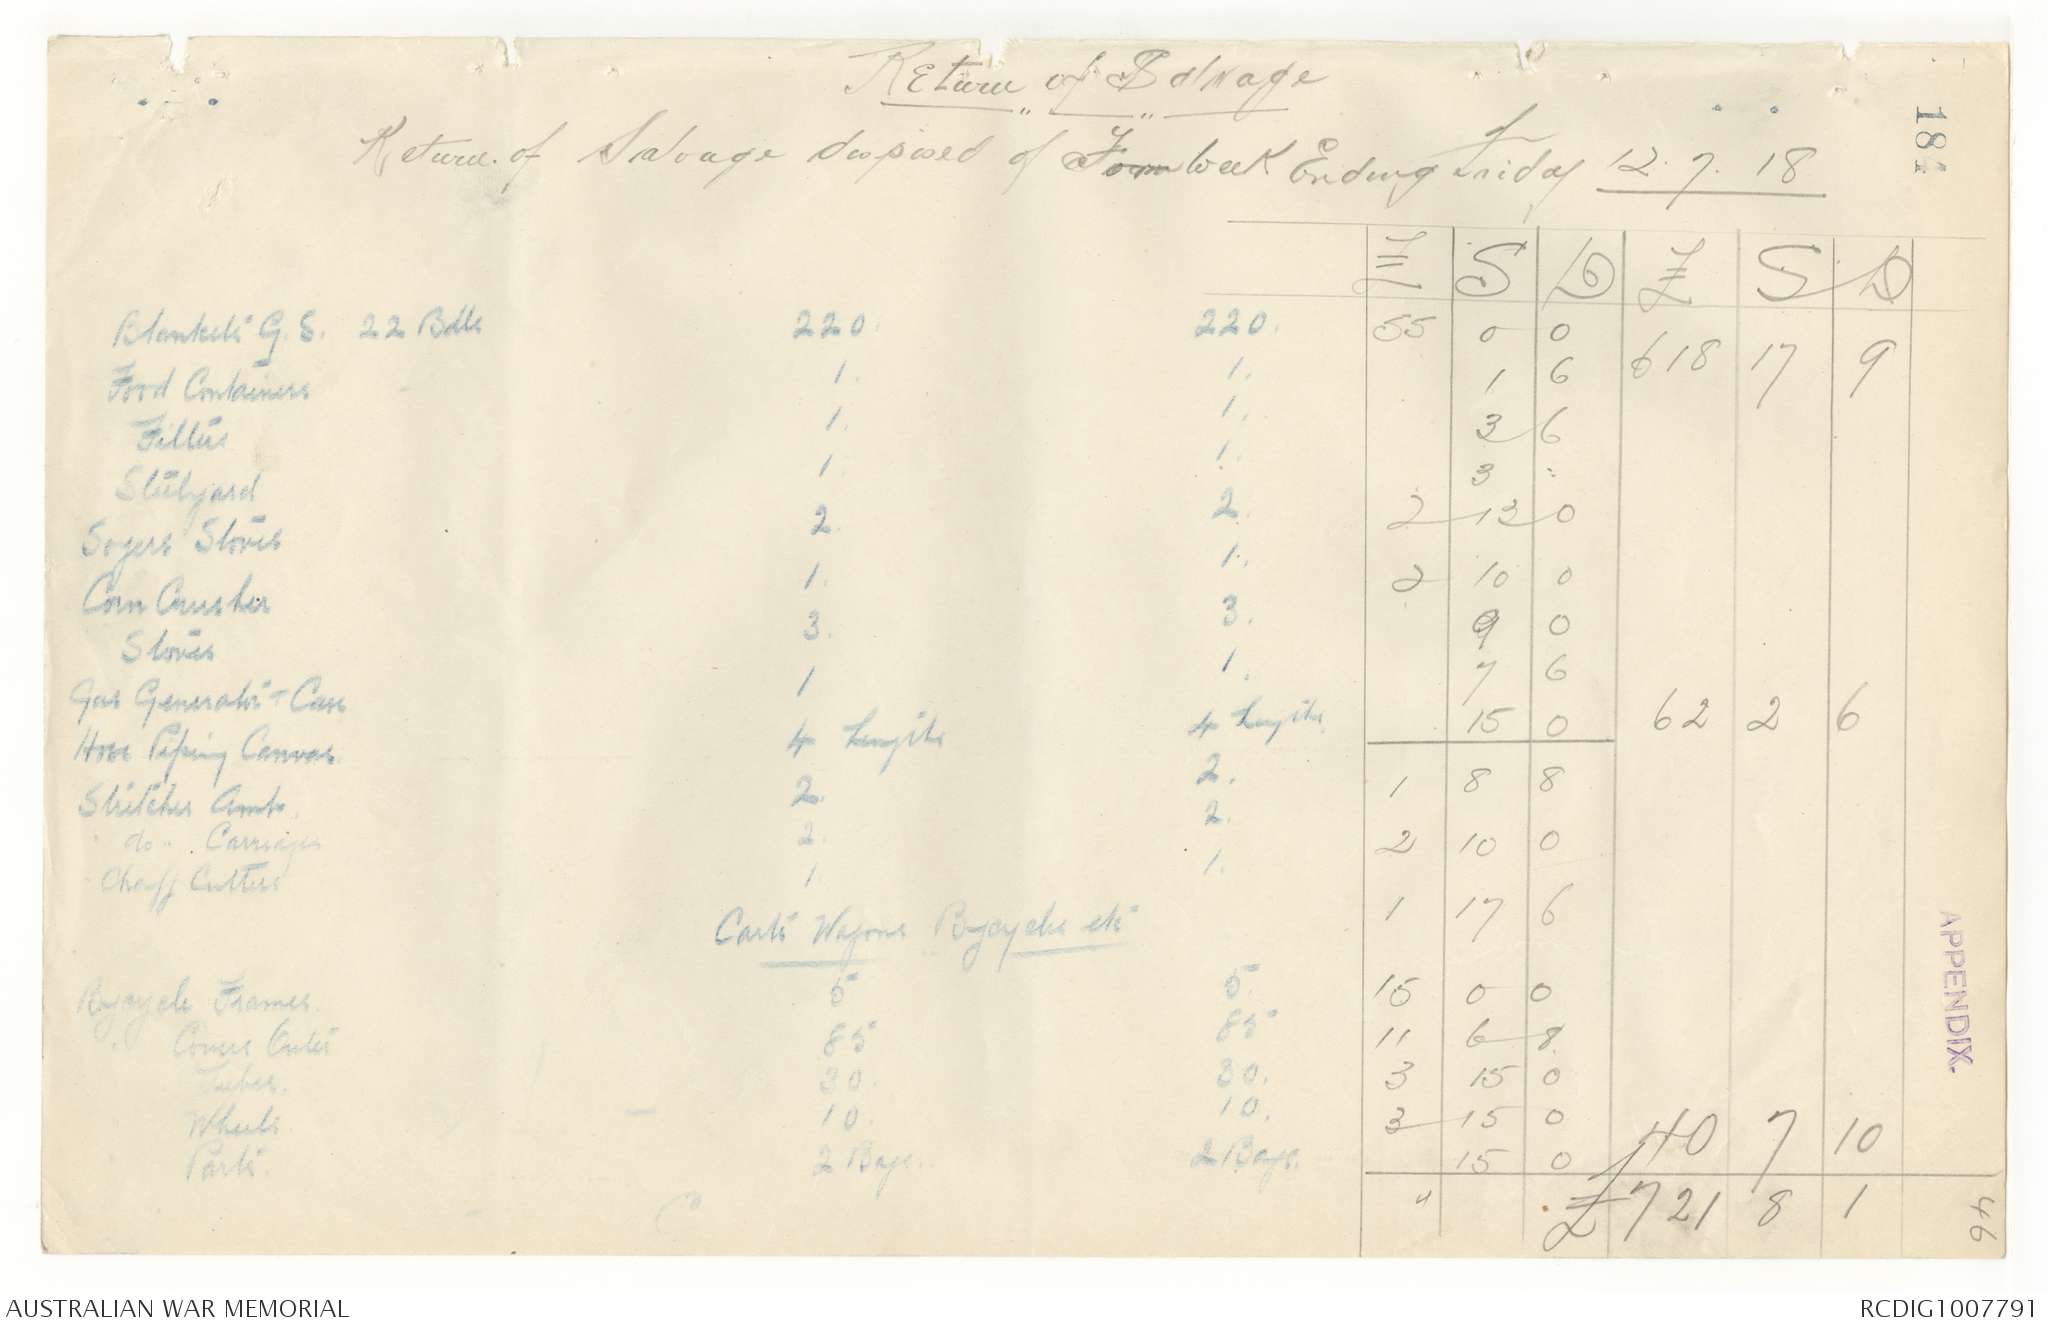 Return of Salvage
Return of Salvage disposed of Week Ending Friday 12.7.18
184
£ S D £ S D
Blankets G.S. 22 Bdls 220. 220. 55 0 0 618 17 9
Food Containers 1. 1. 1 6
Filters 1. 1. 3 6
Steelyard 1. 1. 3 "
Soyers Stoves 2. 2. 2 12 0
Corn Crusher 1. 1. 2 10 0
Stoves 3. 3. 9 0
Gas Generator + Case 1 1. 7 6
Hose Piping Canvas. 4 Lengths 4 Lengths 15 0 62 2 6
Stretcher Amb. 2. 2. 1 8 8
do. Carriages 2. 2. 2 10 0
Chaff Cutters 1. 1. 1 17 6
Carts Wagons Bycycles etc
Bycycle Frames. 5 5. 15 0 0
Covers Outer 85 85 11 6 8
Tubes. 30. 30. 3 15 0
Wheels. 10. 10. 3 15 0 40 7 10
Parts. 2 Bags. 2 Bags. 15 0
" £721 8 1
APPENDIX.
46
AUSTRALIAN WAR MEMORIAL RCDIG1007791